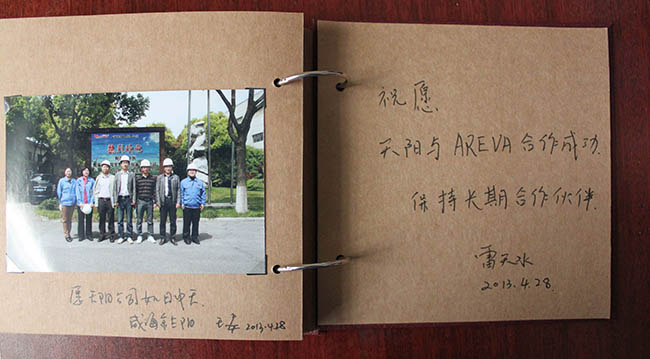 愿天阳公司如日中天.
2013.4.28
祝愿
天阳与 AREVA 合作成功.
保持长期合作伙伴.
雷天水
2013.4.28.